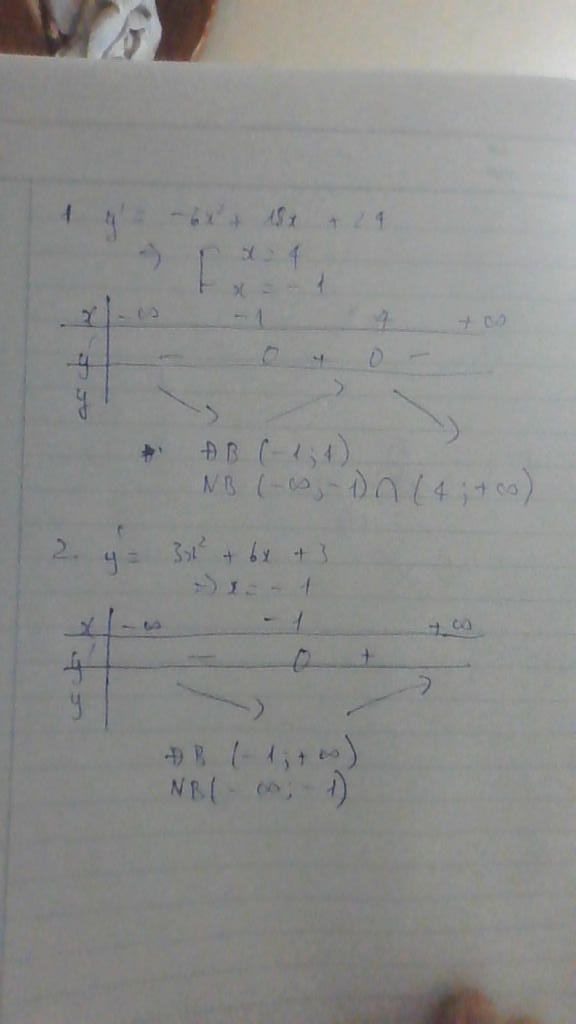 1 y' = -6x² + 18x + 24
=> [ x = 4
x = -1
x | -∞ -1 4 +∞
y' | - 0 + 0 -
y | ↘ ↗ ↘
ĐB (-1; 4)
NB (-∞; -1) ∩ (4; +∞)
2. y' = 3x² + 6x + 3
=> x = -1
x | -∞ -1 +∞
y' | - 0 +
y | ↘ ↗
ĐB (-1; +∞)
NB (-∞; -1)